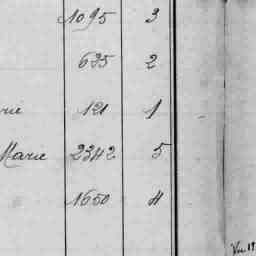 1095 3
625 2
rie 121 1
Marie 2342 5
1650 4
Vu 19